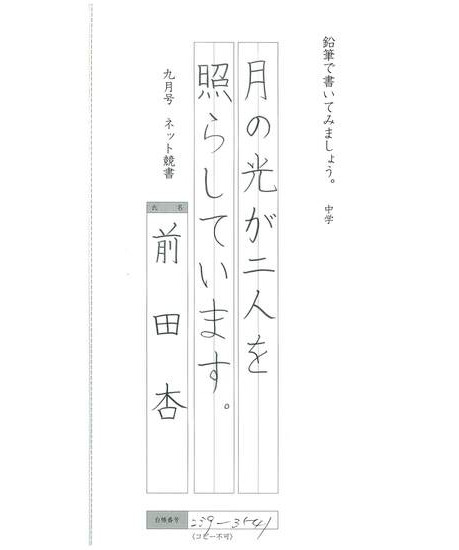 鉛筆で書いてみましょう。 中学
月の光が二人を
照らしています。
九月号 ネット競書
氏名
前田杏
台帳番号 239-3541
(コピー不可)